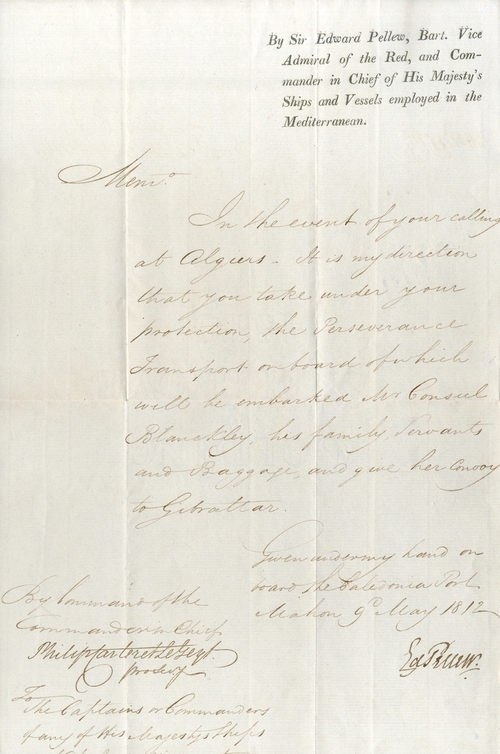 By Sir Edward Pellew, Bart. Vice
Admiral of the Red, and Com-
mander in Chief of His Majesty's
Ships and Vessels employed in the
Mediterranean.
Memo
In the event of your calling
at Algiers - It is my direction
that you take under your
protection, the Perseverance
Transport on board of which
will be embarked Mr Consul
Blanckley, his family, Servants
and Baggage, and give her Convoy
to Gibraltar.
Given under my hand on
board the Caledonia Port
Mahon 9th May 1812
Ed Pellew.
By Command of the
Commander in Chief
Philip Carteret Le Geyt.
To
The Captains or Commanders
of any of His Majesty's Ships